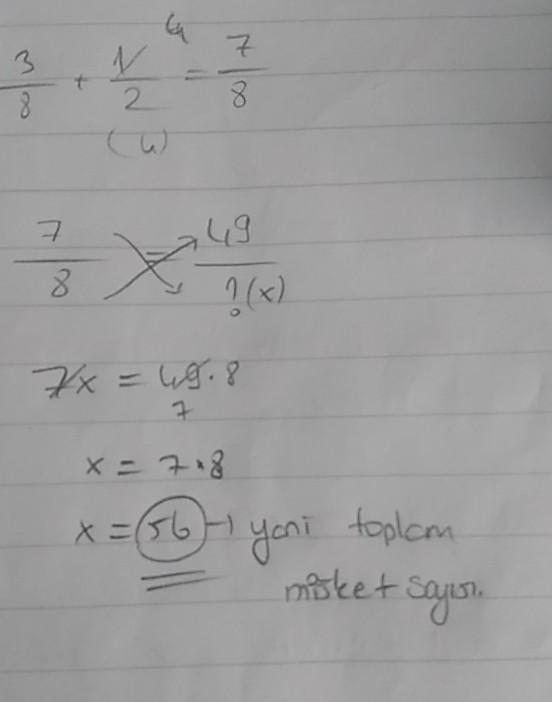 3/8 + 1/2 = 7/8
4
(4)
7/8 = 49/?(x)
7x = 49.8
7
x = 7.8
x = 56 → yani toplam
misket sayısı.